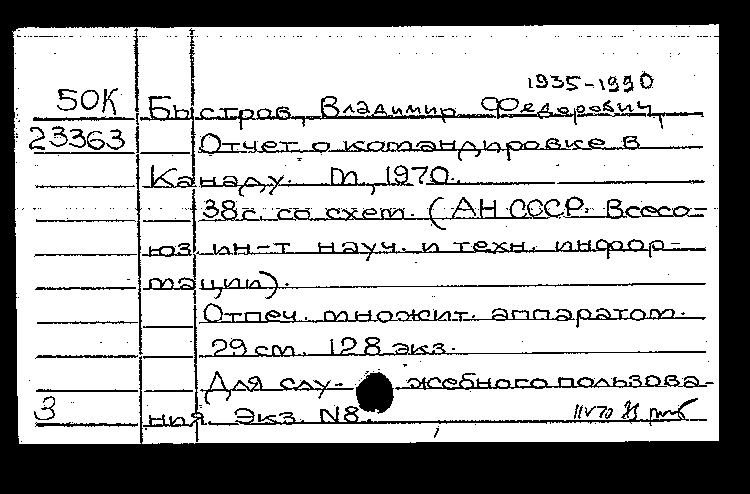 1935-1990
50К Быстров, Владимир Федорович,
23363 Отчет о командировке в
Канаду. М., 1970.
38 с. со схем. (АН СССР. Всесо-
юз ин-т науч. и техн. инфор-
мации).
Отпеч. множит. аппаратом.
29 см. 128 экз.
Для слу- жебного пользова-
3 ния. Экз. N8.